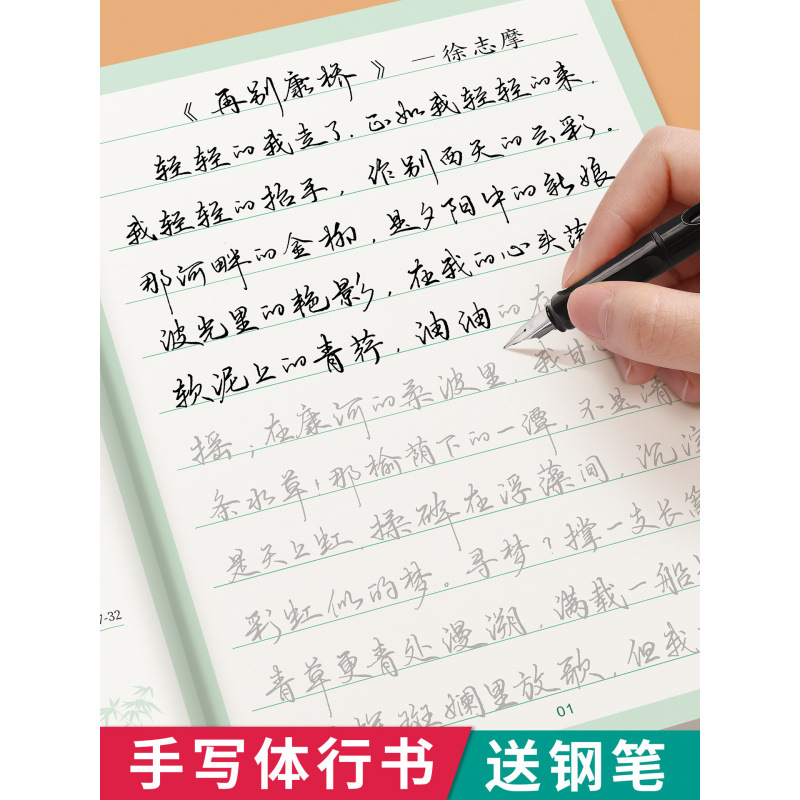 《再别康桥》—徐志摩
轻轻的我走了.正如我轻轻的来.
我轻轻的招手，作别西天的云彩。
那河畔的金柳，是夕阳中的新娘
波光里的艳影，在我的心头荡
软泥上的青荇，油油的在
摇；在康河的柔波里，我甘心
条水草！那榆荫下的一潭，不是清
是天上虹，揉碎在浮藻间，沉淀
彩虹似的梦。寻梦？撑一支长篙
青草更青处漫溯，满载一船
斑斓里放歌，但我
7-32
01
手写体行书
送钢笔